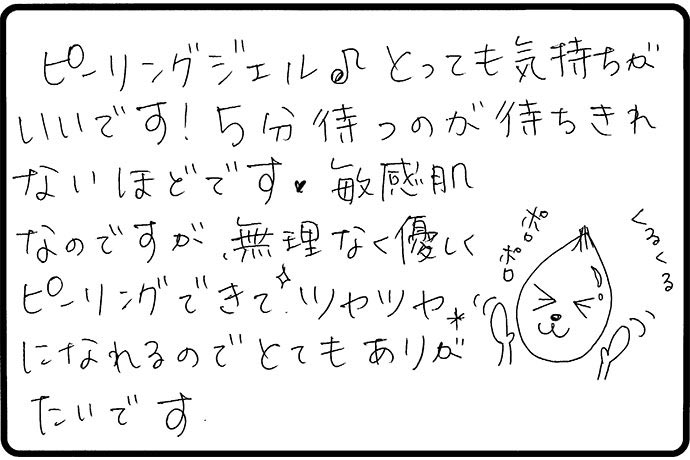 ピーリングジェル♪とっても気持ちが
いいです!5分待つのが待ちきれ
ないほどです♥敏感肌
なのですが、無理なく優しく
ピーリングできて、ツヤツヤ
になれるのでとてもありが
たいです.
ポロポロ
くるくる